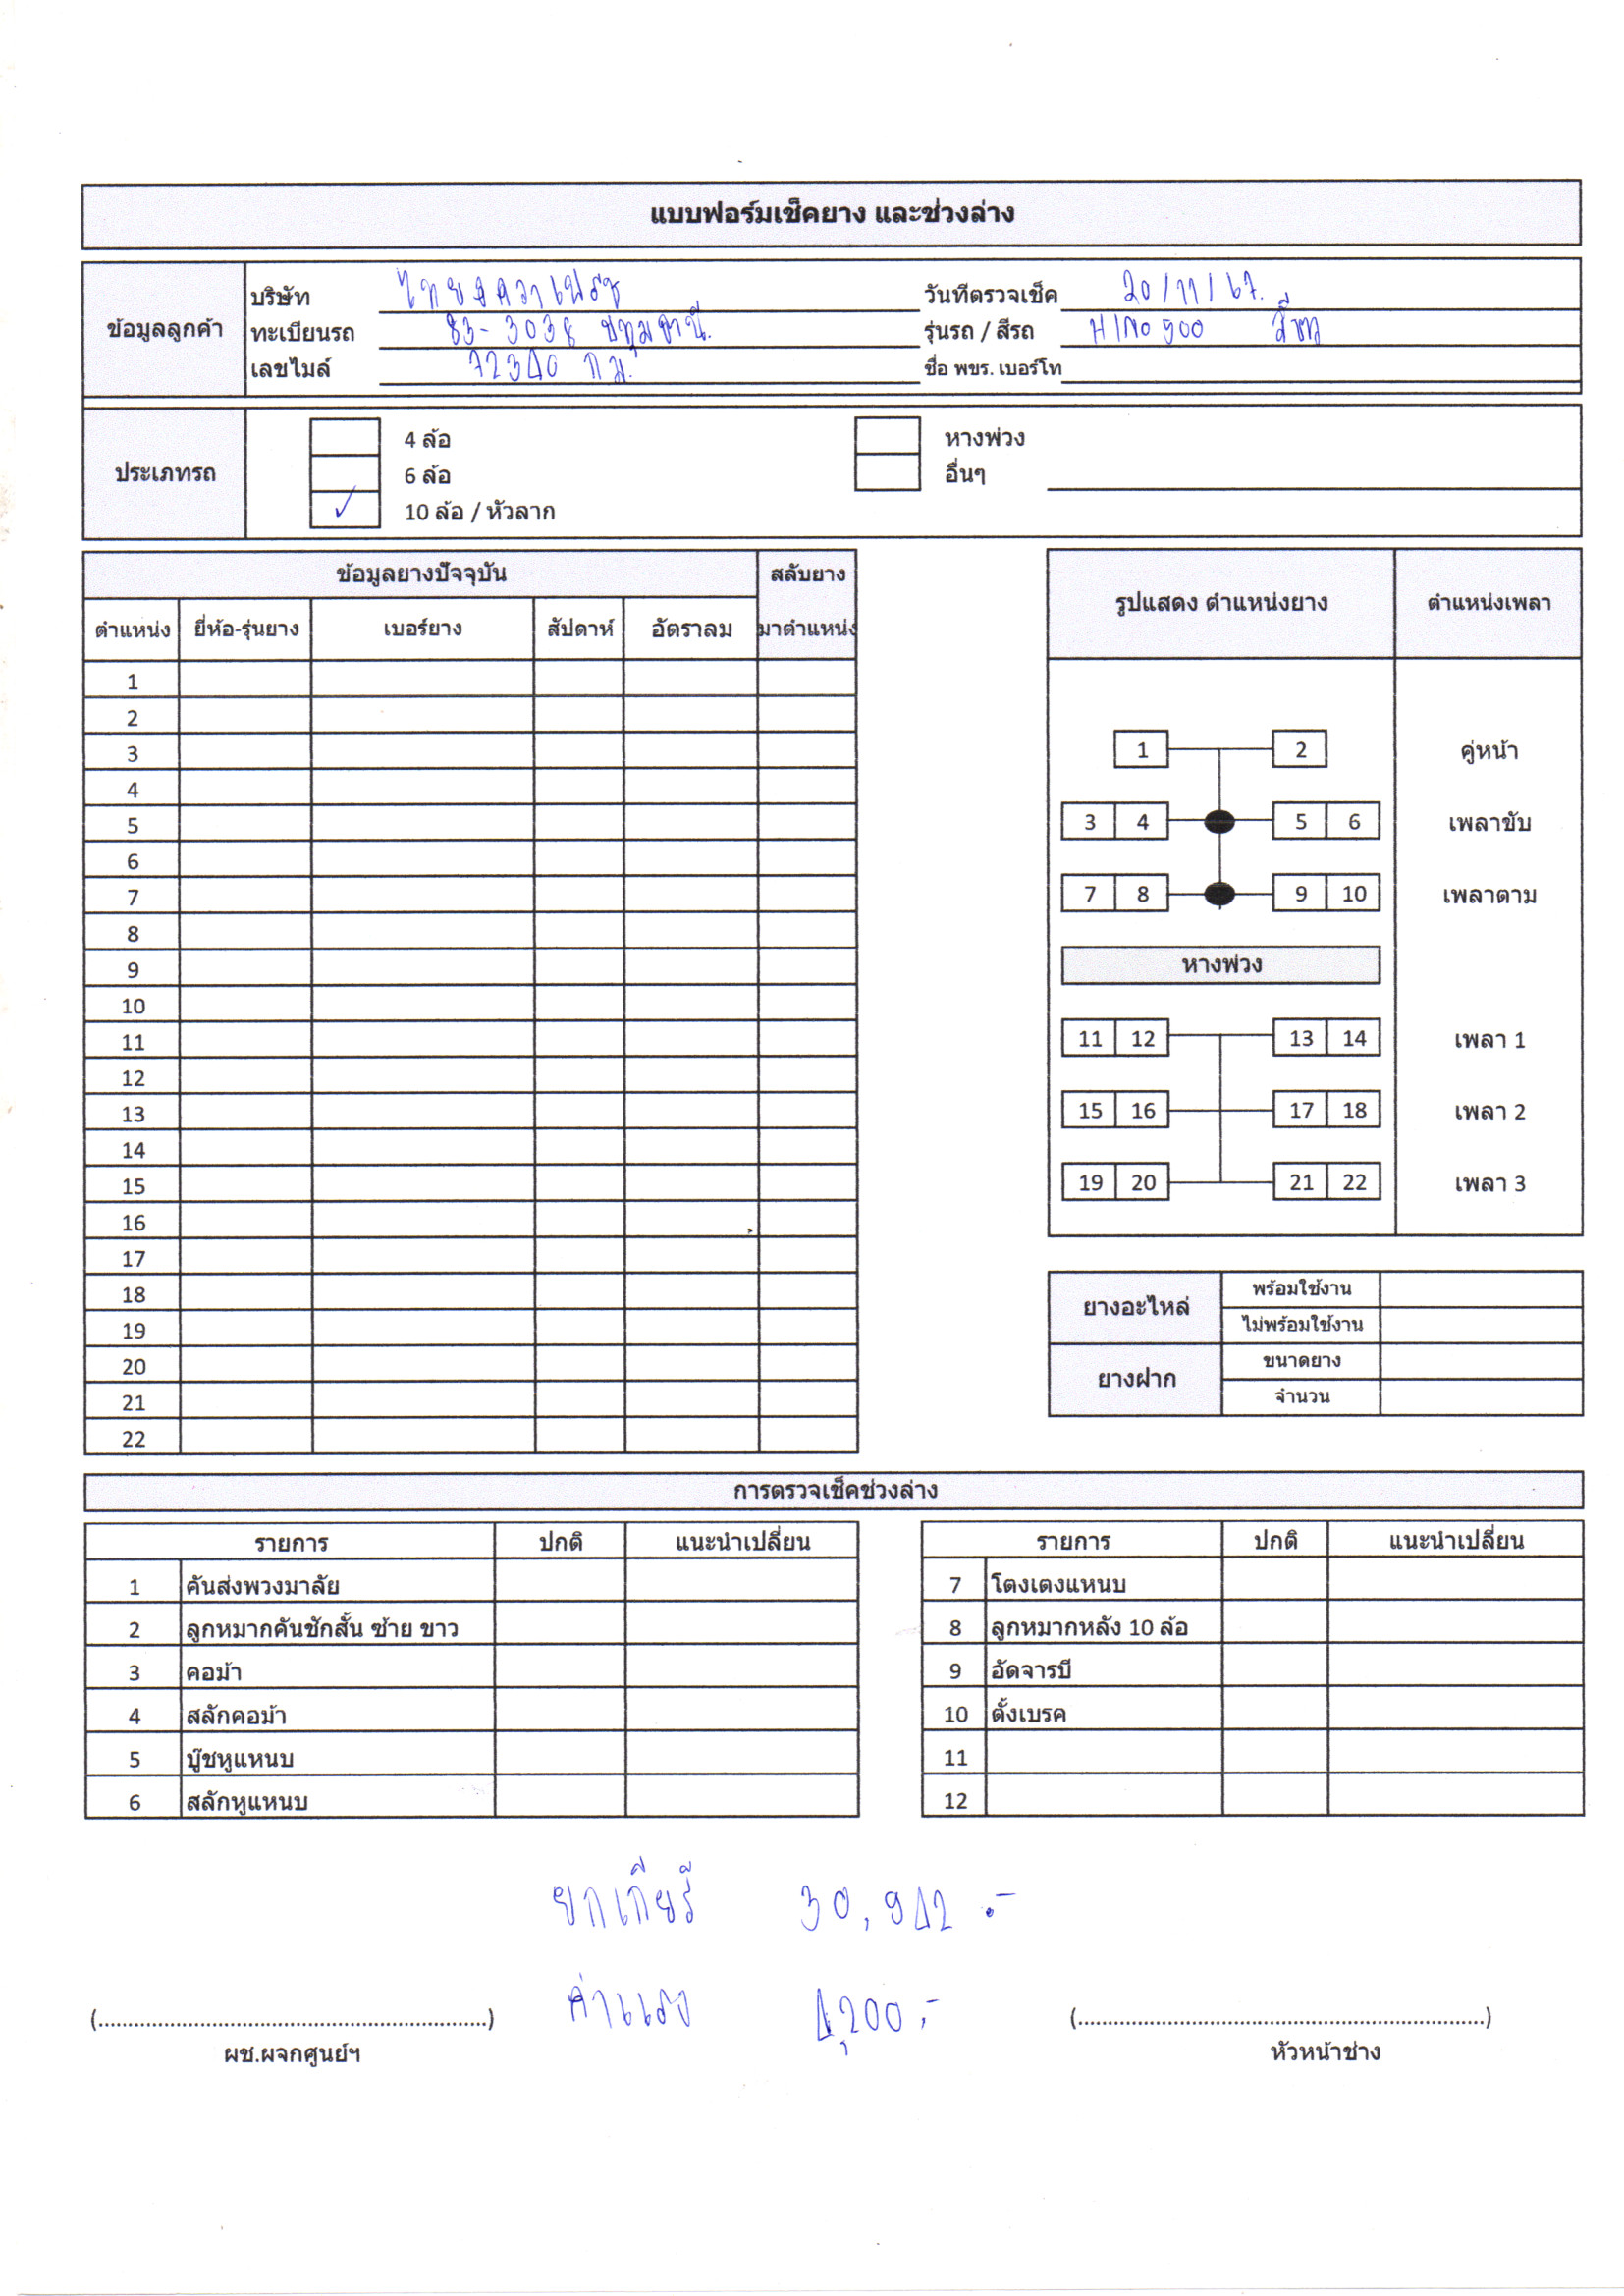 แบบฟอร์มเช็คยาง และช่วงล่าง
ข้อมูลลูกค้า
บริษัท ไทยอควาเฟรช วันที่ตรวจเช็ค 20/11/67.
ทะเบียนรถ 83-3038 ปทุมธานี. รุ่นรถ / สีรถ HINO 500 สีฟ้า
เลขไมล์ 72340 กม. ชื่อ พขร. เบอร์โท
ประเภทรถ
4 ล้อ หางพ่วง
6 ล้อ อื่นๆ
✓ 10 ล้อ / หัวลาก
ข้อมูลยางปัจจุบัน สลับยาง
ตำแหน่ง ยี่ห้อ-รุ่นยาง เบอร์ยาง สัปดาห์ อัตราลม มาตำแหน่ง
1
2
3
4
5
6
7
8
9
10
11
12
13
14
15
16
17
18
19
20
21
22
รูปแสดง ตำแหน่งยาง ตำแหน่งเพลา
1 2 คู่หน้า
3 4 5 6 เพลาขับ
7 8 9 10 เพลาตาม
หางพ่วง
11 12 13 14 เพลา 1
15 16 17 18 เพลา 2
19 20 21 22 เพลา 3
ยางอะไหล่ พร้อมใช้งาน
ไม่พร้อมใช้งาน
ยางฝาก ขนาดยาง
จำนวน
การตรวจเช็คช่วงล่าง
รายการ ปกติ แนะนำเปลี่ยน
1 คันส่งพวงมาลัย
2 ลูกหมากคันชักสั้น ซ้าย ขาว
3 คอม้า
4 สลักคอม้า
5 บู๊ชหูแหนบ
6 สลักหูแหนบ
รายการ ปกติ แนะนำเปลี่ยน
7 โตงเตงแหนบ
8 ลูกหมากหลัง 10 ล้อ
9 อัดจารบี
10 ตั้งเบรค
11
12
ยกเกียร์ 30,942.-
ค่าแรง 4,200.-
(..................................................................) (......................................................................)
ผช.ผจกศูนย์ฯ หัวหน้าช่าง